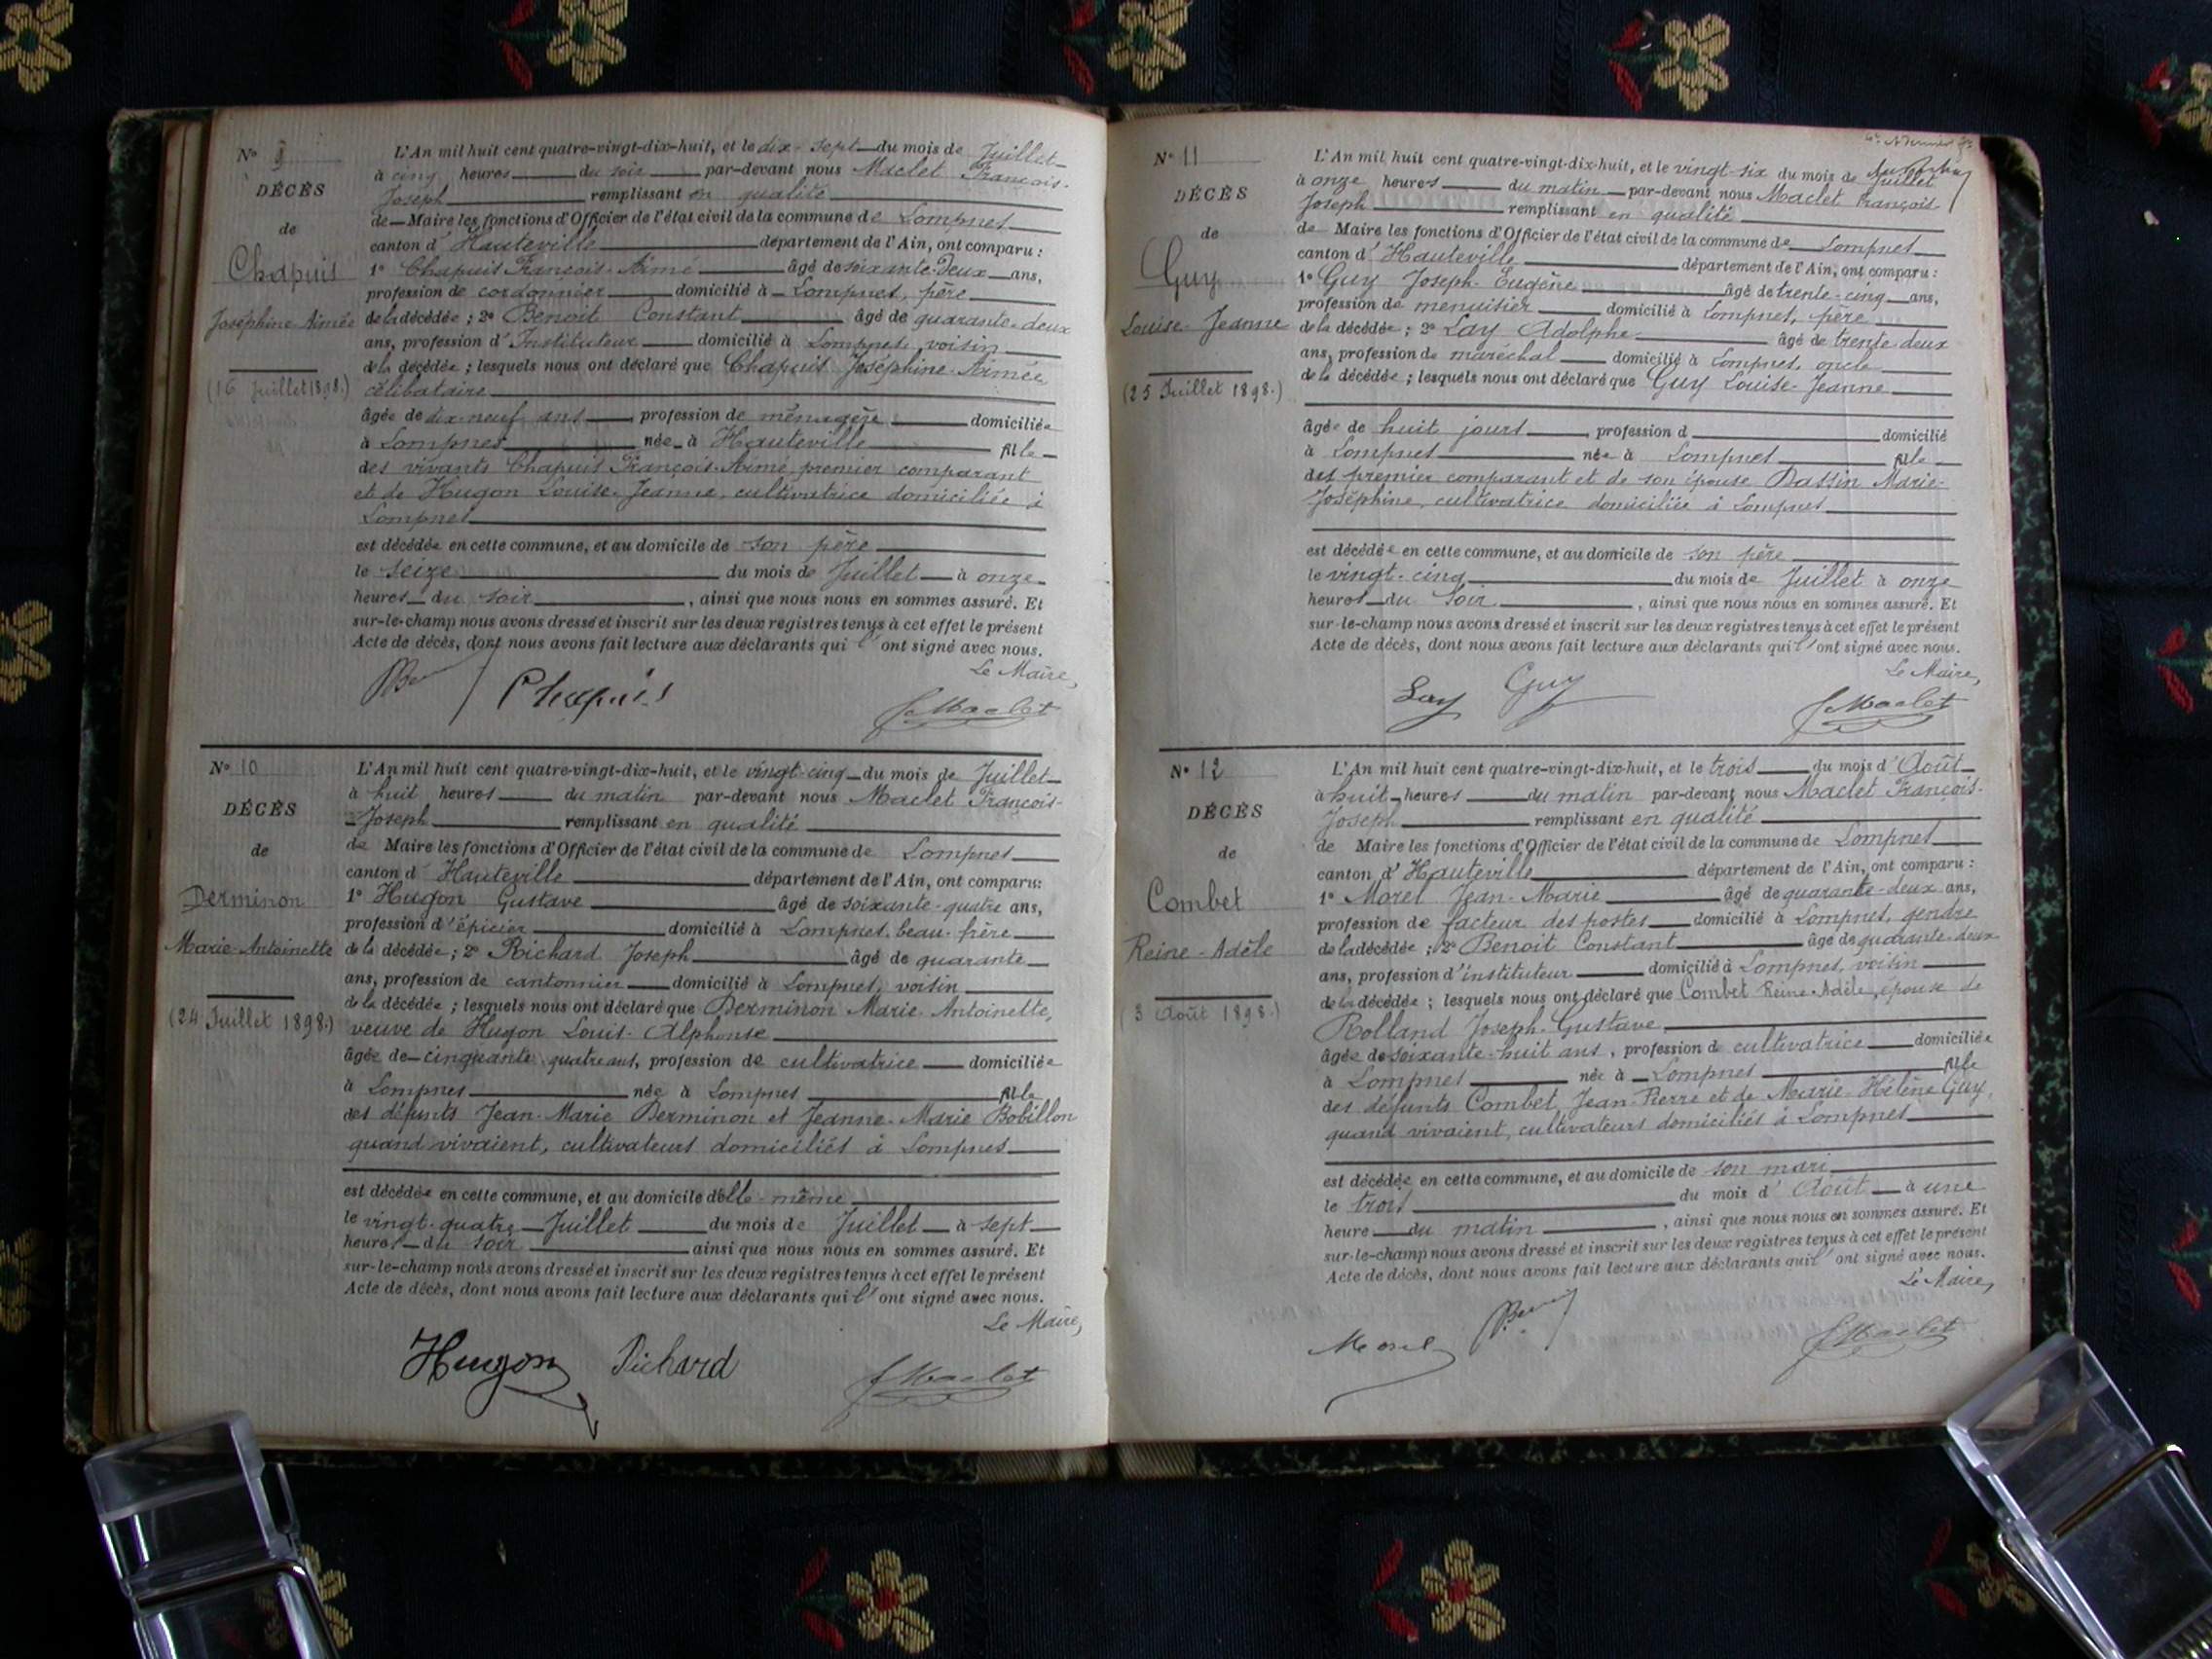 N° 9
DÉCÈS
de
Chapuis
Joséphine-Aimée
(16 Juillet 1898.)
L'An mil huit cent quatre-vingt-dix-huit, et le dix-sept du mois de Juillet
à cinq heures du soir par-devant nous Maclet François-
Joseph remplissant en qualité
de Maire les fonctions d'Officier de l'état civil de la commune de Lompnes
canton d'Hauteville département de l'Ain, ont comparu :
1° Chapuis François-Aimé âgé de soixante-deux ans,
profession de cordonnier domicilié à Lompnes, père
de la décédée ; 2° Benoit Constant âgé de quarante-deux
ans, profession d'Instituteur domicilié à Lompnes, voisin
de la décédée ; lesquels nous ont déclaré que Chapuis Joséphine-Aimée,
célibataire
âgée de dix-neuf ans profession de ménagère domiciliée
à Lompnes née à Hauteville fille
des vivants Chapuis François-Aimé, premier comparant
et de Hugon Louise-Jeanne, cultivatrice domiciliée à
Lompnes
est décédée en cette commune, et au domicile de son père
le seize du mois de Juillet à onze
heures du soir, ainsi que nous nous en sommes assuré. Et
sur-le-champ nous avons dressé et inscrit sur les deux registres tenus à cet effet le présent
Acte de décès, dont nous avons fait lecture aux déclarants qui l'ont signé avec nous.
Le Maire,
Chapuis
J Maclet
N° 10
DÉCÈS
de
Derminon
Marie-Antoinette
(24 Juillet 1898.)
L'An mil huit cent quatre-vingt-dix-huit, et le vingt-cinq du mois de Juillet
à huit heures du matin par-devant nous Maclet François-
Joseph remplissant en qualité
de Maire les fonctions d'Officier de l'état civil de la commune de Lompnes
canton d'Hauteville département de l'Ain, ont comparu :
1° Hugon Gustave âgé de soixante-quatre ans,
profession d'épicier domicilié à Lompnes, beau-frère
de la décédée ; 2° Richard Joseph âgé de quarante
ans, profession de cantonnier domicilié à Lompnes, voisin
de la décédée ; lesquels nous ont déclaré que Derminon Marie-Antoinette,
veuve de Hugon Louis-Alphonse
âgée de cinquante-quatre ans, profession de cultivatrice domiciliée
à Lompnes née à Lompnes fille
des défunts Jean-Marie Derminon et Jeanne-Marie Bobillon
quand vivaient, cultivateurs domiciliés à Lompnes
est décédée en cette commune, et au domicile d'elle-même
le vingt-quatre Juillet du mois de Juillet à sept
heures du soir ainsi que nous nous en sommes assuré. Et
sur-le-champ nous avons dressé et inscrit sur les deux registres tenus à cet effet le présent
Acte de décès, dont nous avons fait lecture aux déclarants qui l'ont signé avec nous.
Le Maire,
Hugon Richard
J Maclet
N° 11
DÉCÈS
de
Guy
Louise-Jeanne
(25 Juillet 1898.)
L'An mil huit cent quatre-vingt-dix-huit, et le vingt-six du mois de Juillet
à onze heures du matin par-devant nous Maclet François
Joseph remplissant en qualité
de Maire les fonctions d'Officier de l'état civil de la commune de Lompnes
canton d'Hauteville département de l'Ain, ont comparu :
1° Guy Joseph-Eugène âgé de trente-cinq ans,
profession de menuisier domicilié à Lompnes, père
de la décédée ; 2° Lay Adolphe âgé de trente-deux
ans, profession de maréchal domicilié à Lompnes, oncle
de la décédée ; lesquels nous ont déclaré que Guy Louise-Jeanne
âgée de huit jours, profession d domicilié
à Lompnes née à Lompnes fille
des premier comparant et de son épouse Marie-
Joséphine, cultivatrice domiciliée à Lompnes
est décédée en cette commune, et au domicile de son père
le vingt-cinq du mois de Juillet à onze
heures du soir, ainsi que nous nous en sommes assuré. Et
sur-le-champ nous avons dressé et inscrit sur les deux registres tenus à cet effet le présent
Acte de décès, dont nous avons fait lecture aux déclarants qui l'ont signé avec nous.
Le Maire,
Lay Guy
J Maclet
N° 12
DÉCÈS
de
Combet
Reine-Adèle
(3 Août 1898.)
L'An mil huit cent quatre-vingt-dix-huit, et le trois du mois d'Août
à huit heures du matin par-devant nous Maclet François-
Joseph remplissant en qualité
de Maire les fonctions d'Officier de l'état civil de la commune de Lompnes
canton d'Hauteville département de l'Ain, ont comparu :
1° Morel Jean-Marie âgé de quarante-deux ans,
profession de facteur des postes domicilié à Lompnes, gendre
de la décédée ; 2° Benoit Constant âgé de quarante-deux
ans, profession d'instituteur domicilié à Lompnes, voisin
de la décédée ; lesquels nous ont déclaré que Combet Reine-Adèle, épouse de
Rolland Joseph-Gustave
âgée de soixante-huit ans, profession de cultivatrice domiciliée
à Lompnes née à Lompnes fille
des défunts Combet Jean-Pierre et de Marie-Hélène Guy,
quand vivaient, cultivateurs domiciliés à Lompnes
est décédée en cette commune, et au domicile de son mari
le trois du mois d'Août à une
heure du matin, ainsi que nous nous en sommes assuré. Et
sur-le-champ nous avons dressé et inscrit sur les deux registres tenus à cet effet le présent
Acte de décès, dont nous avons fait lecture aux déclarants qui l'ont signé avec nous.
Le Maire,
Morel
J Maclet